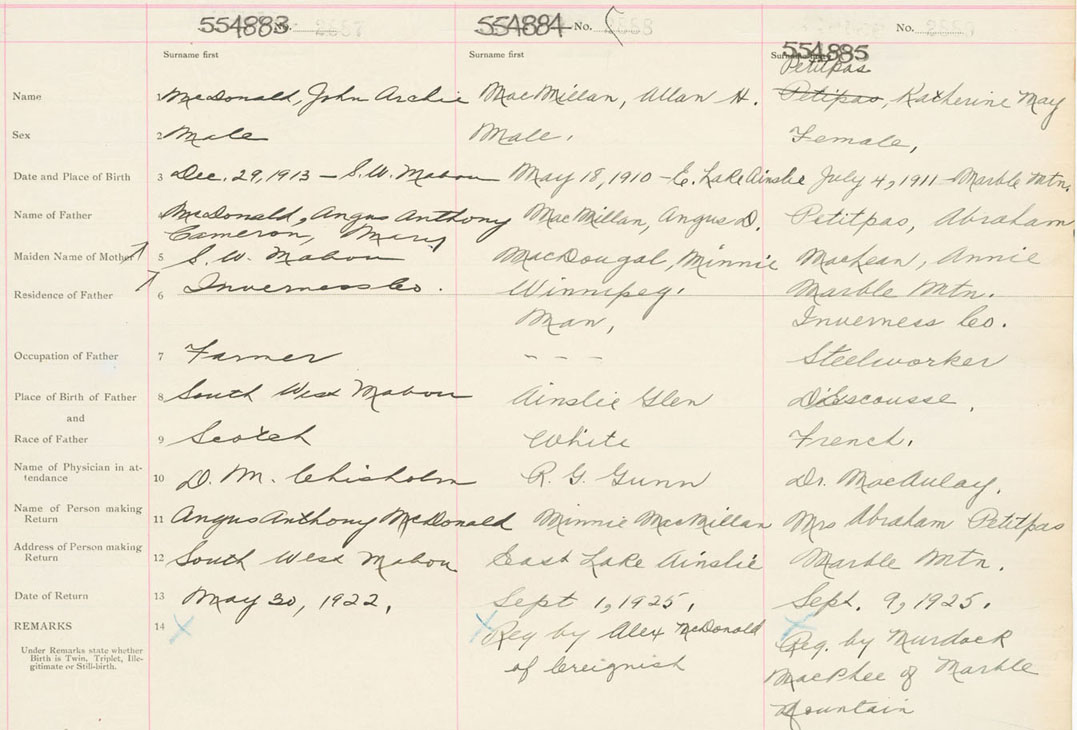 554883 No. 2337 554884 No. 2338 No.
Surname first Surname first 554885
Petitpas
Name 1 McDonald, John Archie MacMillan, Allan H. Petipas, Katherine May
Sex 2 Male Male. Female,
Date and Place of Birth 3 Dec. 29, 1913 – S.W. Mabou May 18, 1910 – E. Lake Ainslie July 4, 1911 – Marble Mtn.
Name of Father McDonald, Angus Anthony MacMillan, Angus D. Petitpas, Abraham
Cameron, Mary
Maiden Name of Mother 5 S. W. Mabou MacDougal, Minnie MacLean, Annie
Residence of Father 6 Inverness Co. Winnipeg. Marble Mtn.
Man, Inverness Co.
Occupation of Father 7 Farmer - - - Steelworker
Place of Birth of Father 8 South West Mabou Ainslie Glen D'Escousse,
and
Race of Father 9 Scotch White French.
Name of Physician in at-
tendance 10 D. M. Chisholm R. G. Gunn Dr. MacAulay.
Name of Person making
Return 11 Angus Anthony McDonald Minnie MacMillan Mrs Abraham Petitpas
Address of Person making
Return 12 South West Mabou East Lake Ainslie Marble Mtn.
Date of Return 13 May 30, 1922. Sept 1, 1925. Sept. 9, 1925.
REMARKS 14 X X X
Reg by Alex McDonald Reg. by Murdock
of Creignish MacPhee of Marble
Mountain
Under Remarks state whether
Birth is Twin, Triplet, Ille-
gitimate or Still-birth.